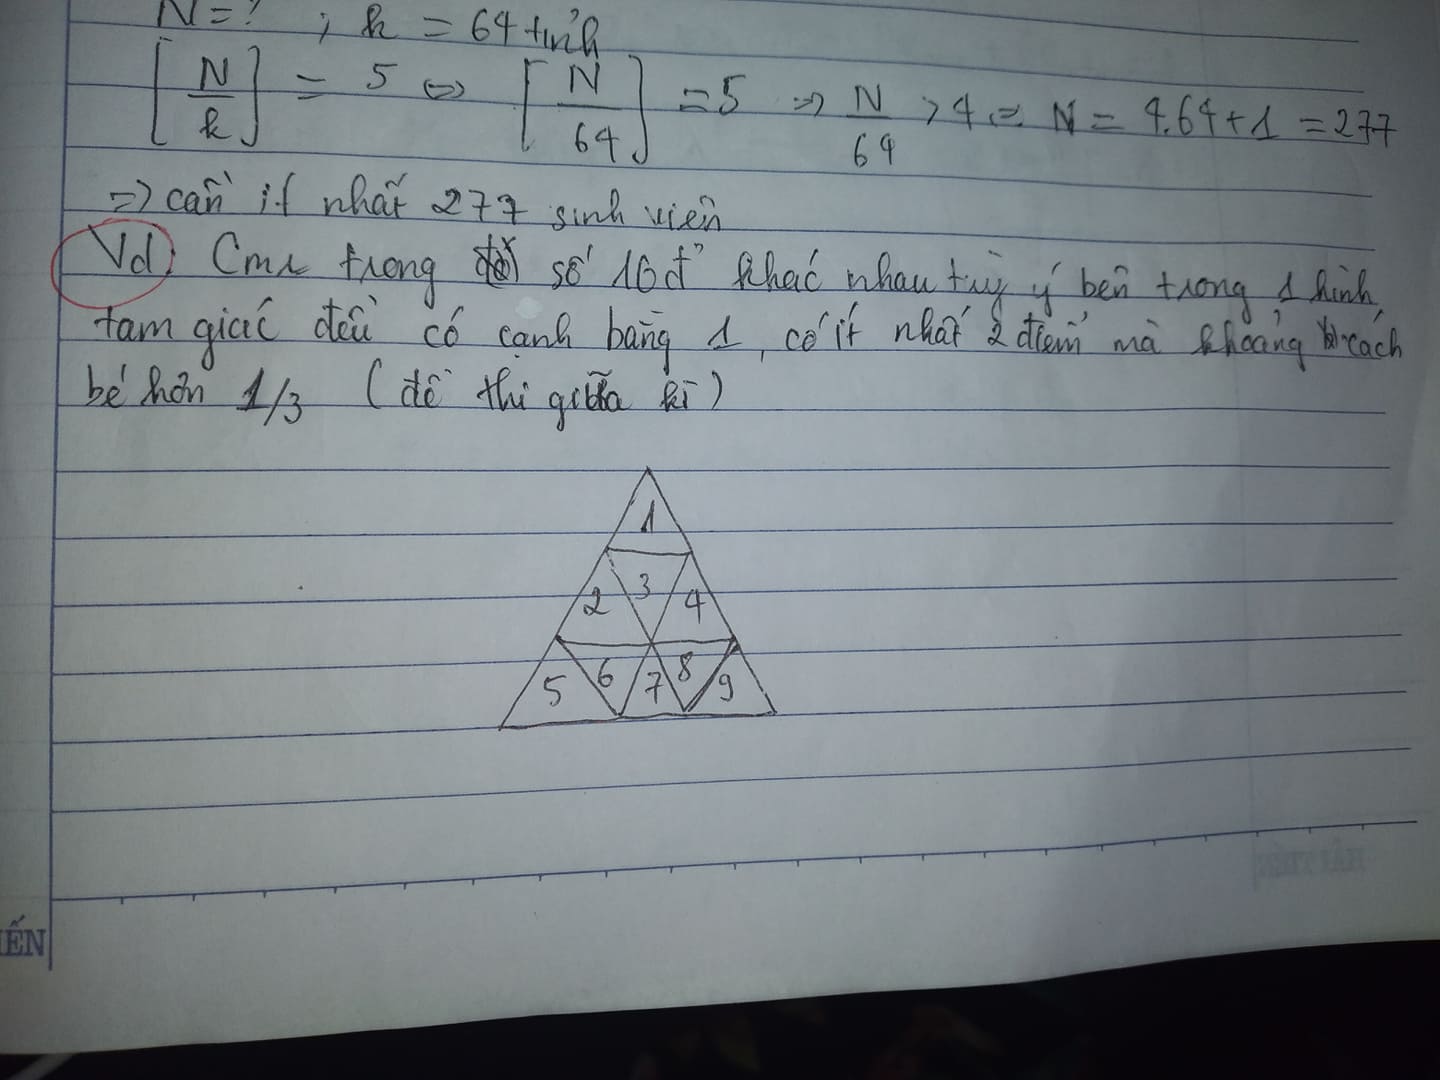 N=? ; k = 64 tỉnh
⌈N/k⌉ = 5 ⇔ ⌈N/64⌉ = 5 ⇒ N/64 > 4 ⇒ N = 4.64+1 = 277
⇒ cần ít nhất 277 sinh viên
Vd: Cmr trong số 10đ' khác nhau tùy ý bên trong 1 hình
tam giác đều có cạnh bằng 1, có ít nhất 2 điểm mà khoảng cách
bé hơn 1/3 (đề thi giữa kì)
1
2 3 4
5 6 7 8 9
ẾN